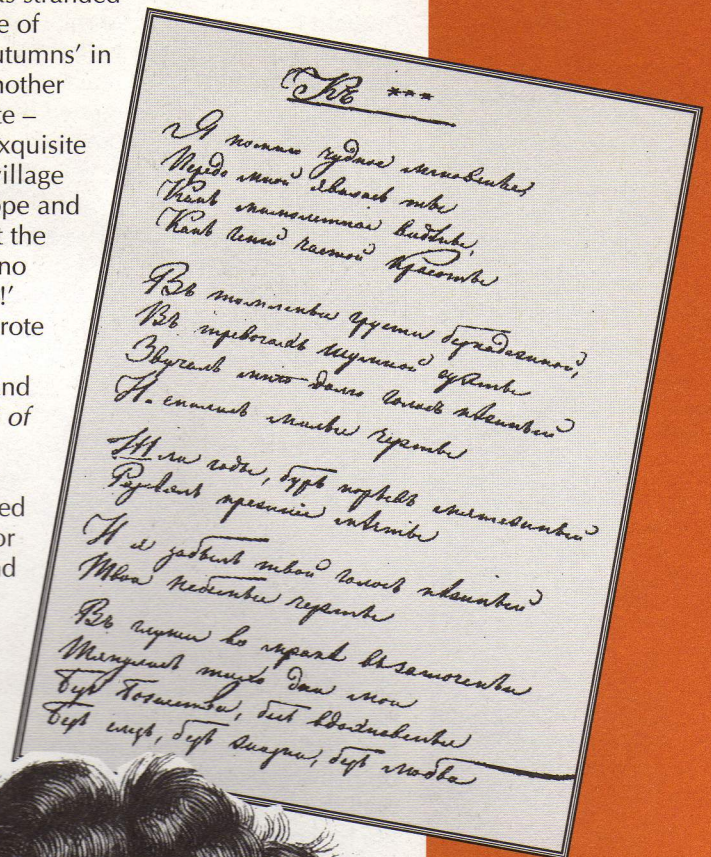 as stranded
e of
utumns’ in
nother
te –
xquisite
illage
ope and
t the
no
!’
rote
nd
of
ed
or
nd
Къ ***
Я помню чудное мгновенье,
Передо мной явилась ты
Какъ мимолетное видѣнье,
Какъ геній чистой красоты
Въ томленьи грусти безнадежной,
Въ тревогахъ шумной суеты
Звучалъ мнѣ долго голосъ нѣжный
И снились милые черты
Шли годы, бурь порывъ мятежный
Разсѣялъ прежніе мечты
И я забылъ твой голосъ нѣжный
Твои небесные черты
Въ глуши во мракѣ заточенья
Тянулись тихо дни мои
Безъ божества, безъ вдохновенья
Безъ слезъ, безъ жизни, безъ любви